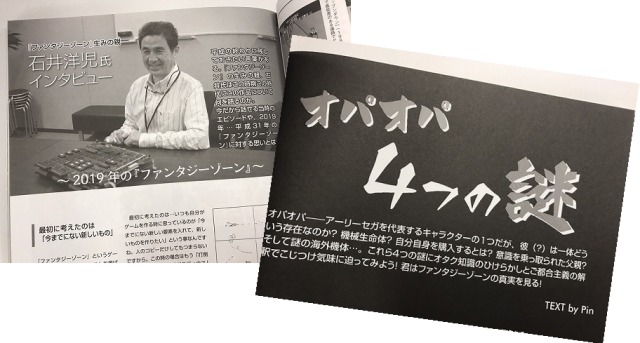 『ファンタジーゾーン』生みの親
石井洋児氏
インタビュー
～2019年の『ファンタジーゾーン』～
最初に考えたのは
「今までにない新しいもの」
「ファンタジーゾーン」というゲー
最初に考えたのは…いつも自分が
ゲームを作る時に思っているのが「今
までにない新しい要素を入れて、新し
いものを作りたい」という事なんです
ね。人のコピーだけしてもつまらない
ですから。この時の場合はもう「打倒
オパオパ
4つの謎
オパオパ――アーリーセガを代表するキャラクターの1つだが、彼（？）は一体どう
いう存在なのか？機械生命体？自分自身を購入するとは？意識を乗っ取られた父親？
そして謎の海外機体…。これら4つの謎にオタク知識のひけらかしとご都合主義の解
釈でこじつけ気味に迫ってみよう！君はファンタジーゾーンの真実を見る！
TEXT by Pin